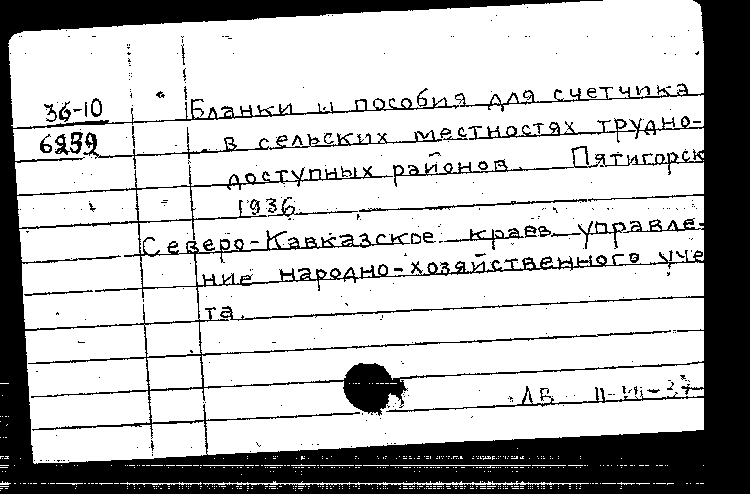 36-10 Бланки и пособия для счетчика
в сельских местностях трудно-
доступных районов. Пятигорск
1936
Северо-Кавказское краев. управле-
ние народно-хозяйственного уче
та.
ЛВ II-VII-37